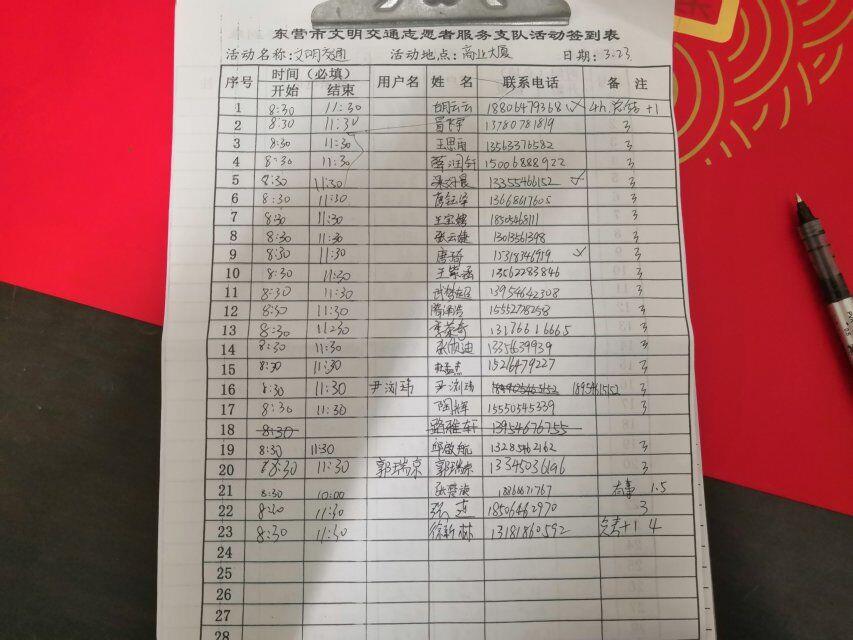 东营市文明交通志愿者服务支队活动签到表
活动名称:文明交通 活动地点:商业大厦 日期:3.23
序号 时间(必填) 用户名 姓 名 联系电话 备 注
开始 结束
1 8:30 11:30 胡云云 18806479368 4h 总结+1
2 8:30 11:30 13780781819 3
3 8:30 11:30 王思雨 13563376582 3
4 8:30 11:30 15006888922 3
5 8:30 11:30 13355466152 3
6 8:30 11:30 13668617605 3
7 8:30 11:30 18505468111 3
8 8:30 11:30 张云婕 13013561398 3
9 8:30 11:30 唐琦 15318346919 3
10 8:30 11:30 王紫涵 13562283846 3
11 8:30 11:30 13954642308 3
12 8:30 11:30 15552778258 3
13 8:30 11:30 13176616665 3
14 8:30 11:30 张欣迪 3
15 8:30 11:30 15216479227 3
16 8:30 11:30 尹浏玮 尹浏玮 3
17 8:30 11:30 陶辉 15550545339 3
18 8:30 13954676755
19 8:30 11:30 邱敬航 13285462162 3
20 8:30 11:30 郭瑞京 郭瑞京 13345036196 3
21 8:30 10:00 有事 1.5
22 8:30 11:30 18506462970 3
23 8:30 11:30 徐新林 13181860592 +1 4
24
25
26
27
28